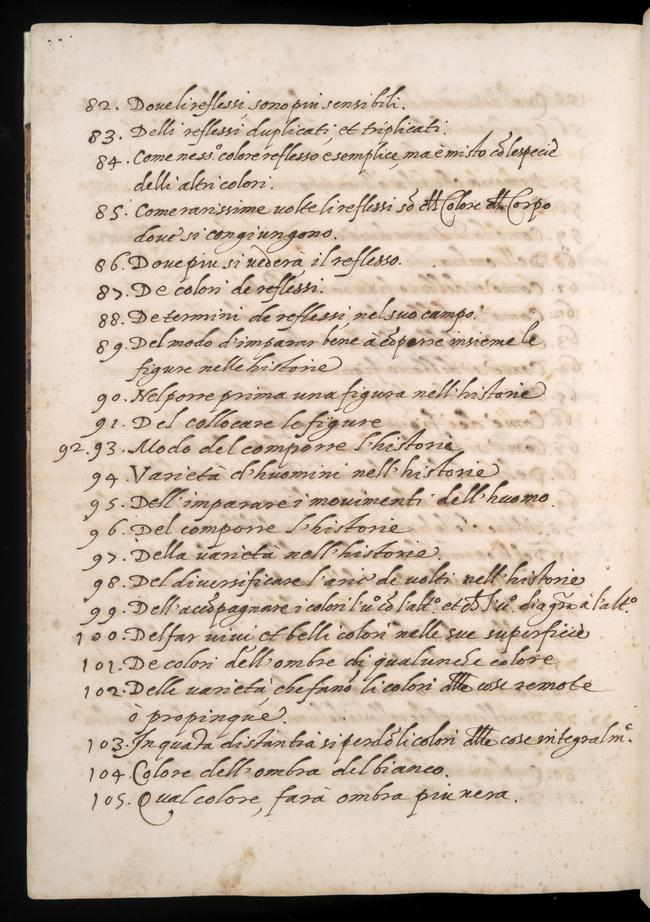 82. Doue li reflessi sono piu sensibili.
83. Delli reflessi duplicati, et triplicati.
84. Come ness.o colore reflesso è semplice, ma è misto cō le specie
delli altri colori.
85. Come rarissime uolte li reflessi sō del Colore del Corpo
doue si congiungono.
86. Doue piu si uederà il reflesso.
87. De colori de reflessi.
88. De termini de reflessi, nel suo campo.
89. Del modo d'imparar bene à cōporre insieme le
figure nelle historie
90. Nel porre prima una figura nell'historie
91. Del collocare le figure
92.93. Modo del comporre l'historie
94. Varietà d'huomini nell'historie
95. Dell'imparare i mouimenti dell'huomo.
96. Del comporre l'historie
97. Della uarietà nell'historie.
98. Del diuersificare l'arie de uolti nell'historie
99. Dell'accōpagnare i colori l'u.o cō l'alt.o et ch l'u.o dia gra à l'alt.o
100. Del far uiui et belli colori nelle sue superficie
101. De colori dell'ombre di qualunche colore
102. Delle uarietà, che fano li colori delle cose remote
ò propinque.
103. In quāta distantia si perdō li colori delle cose integralm.e
104. Colore dell'ombra del bianco.
105. Qual colore, farà ombra piu nera.